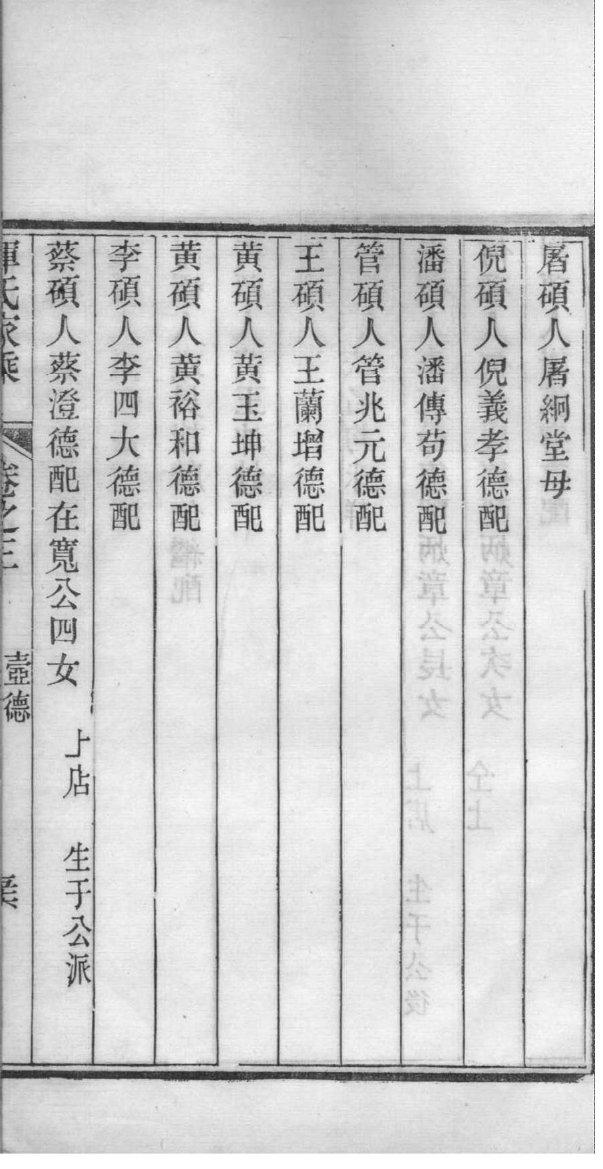 屠碩人屠絅堂母
倪碩人倪義孝德配
潘碩人潘傳苟德配
管碩人管兆元德配
王碩人王蘭增德配
黄碩人黄玉坤德配
黄碩人黄裕和德配
李碩人李四大德配
蔡碩人蔡澄德配在寬公四女 上店 生于公派
惲氏家乘 卷之三 壼德